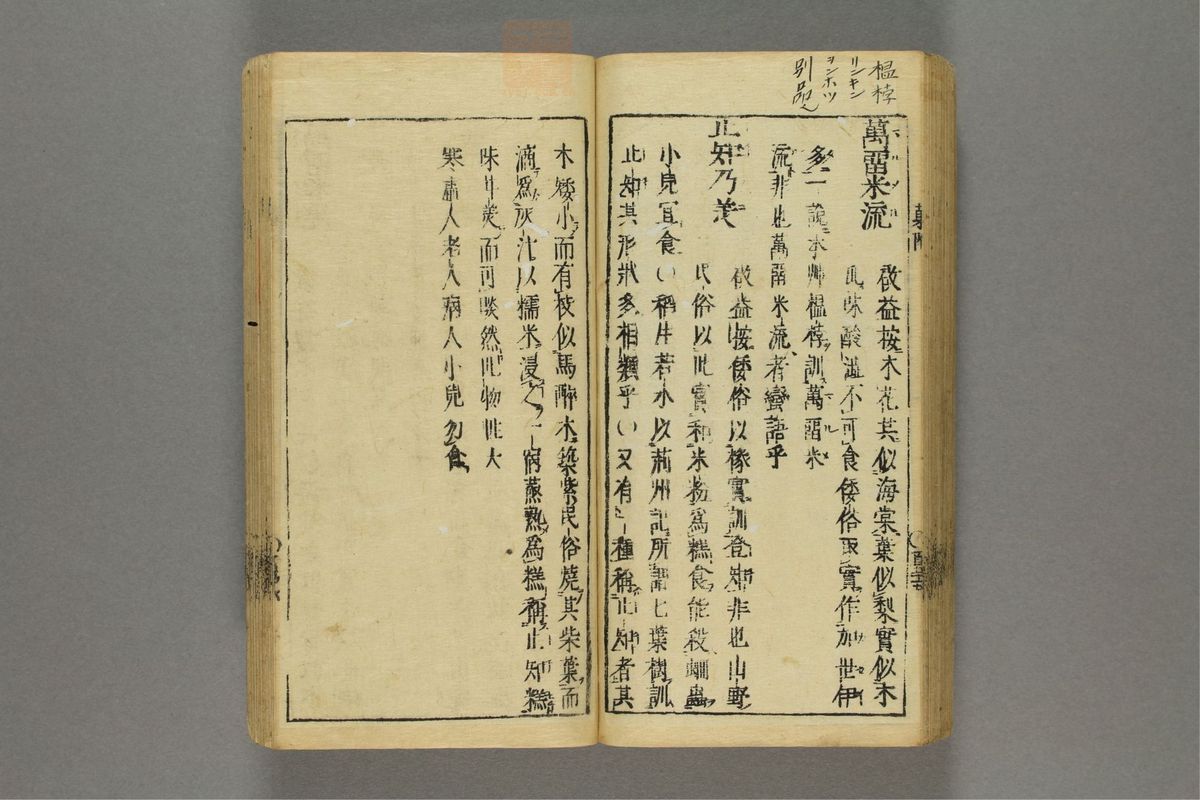 榲桲
リンキン
ヲンホツ
別品也
菓部
萬畱米流
啟益按木花其似海棠葉似梨實似木
瓜味酸澁不可食倭俗取實作加世伊
多一說本艸榲桲訓萬畱米
流非也萬畱米流者蠻語乎
止知乃美
啟益按倭俗以橡實訓登知非也山野
民俗以此實和米粉爲糕食能殺蚘蟲
小兒宜食〇稱生若水以荊州記所謂七葉樹訓
止知其形狀多相類乎〇又有一種稱止知者其
木矮小而有枝似馬醉木築紫民俗燒其柴葉而
滴爲灰汁以糯米浸之一宿蒸熟爲糕稱止知糕
味甘美而可啖然此物性大
寒肅人老人病人小兒勿食